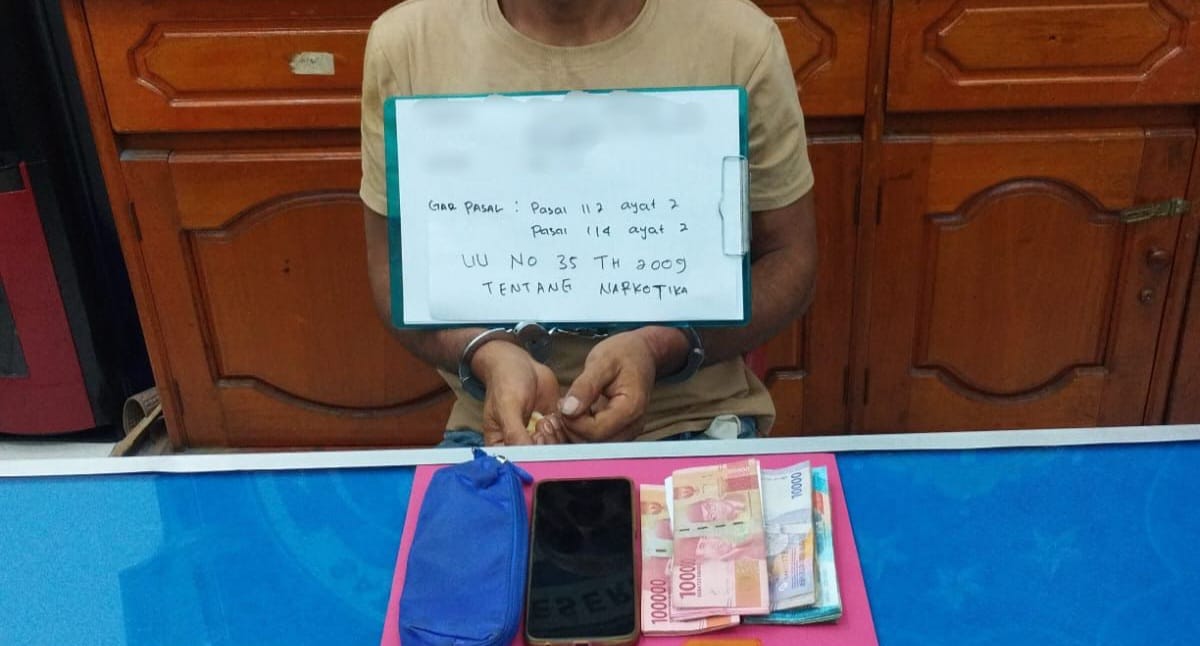 GAR PASAL : Pasal 112 ayat 2
Pasal 114 ayat 2
UU NO 35 TH 2009
TENTANG NARKOTIKA
100000
10000
ESER